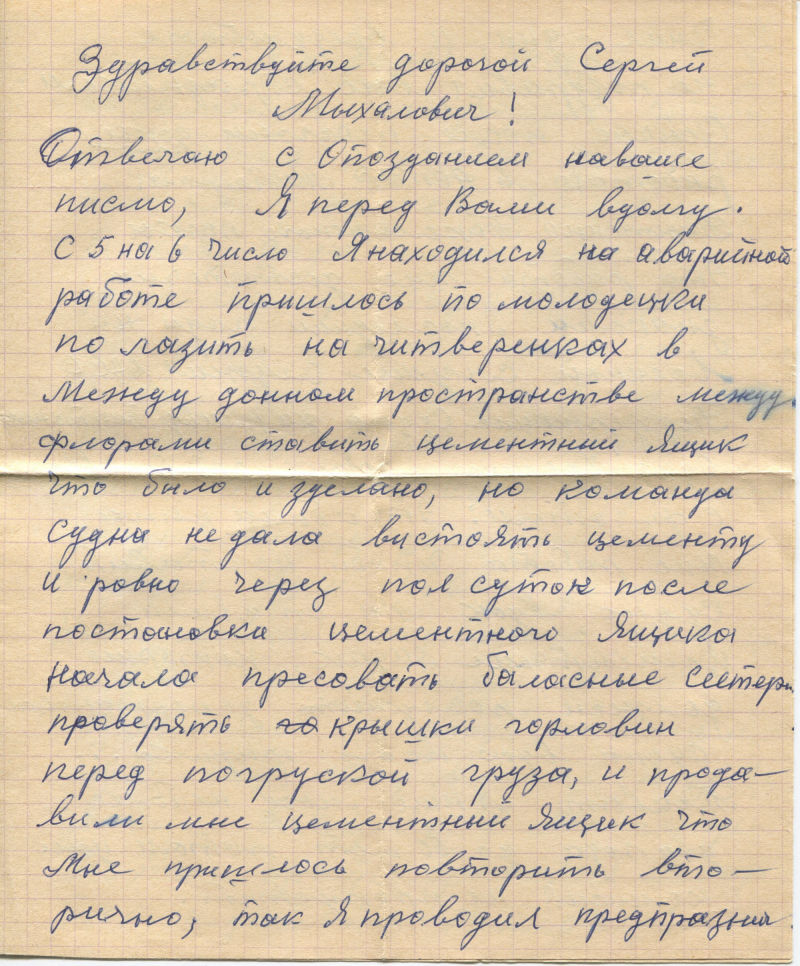 Здравствуйте дорогой Сергей
Мыхалович!
Отвечаю с Опозданием наваше
писмо, Я перед Вами вдолгу.
С 5 на 6 число Янаходился на аварийной
работе пришлось по молодецки
по лазить на читверенках в
Между донном пространстве между
флорами ставить цементний ящик
что было и зделано, но команда
судна недала вистоять цементу
и ровно через пол суток после
постановки цементного ящика
начала пресовать баласные систерн
проверять крышки горловин
перед погруской груза, и прода-
вили мне цементный ящик что
Мне пришлось повторить вто-
рично, так Я проводил предпразни